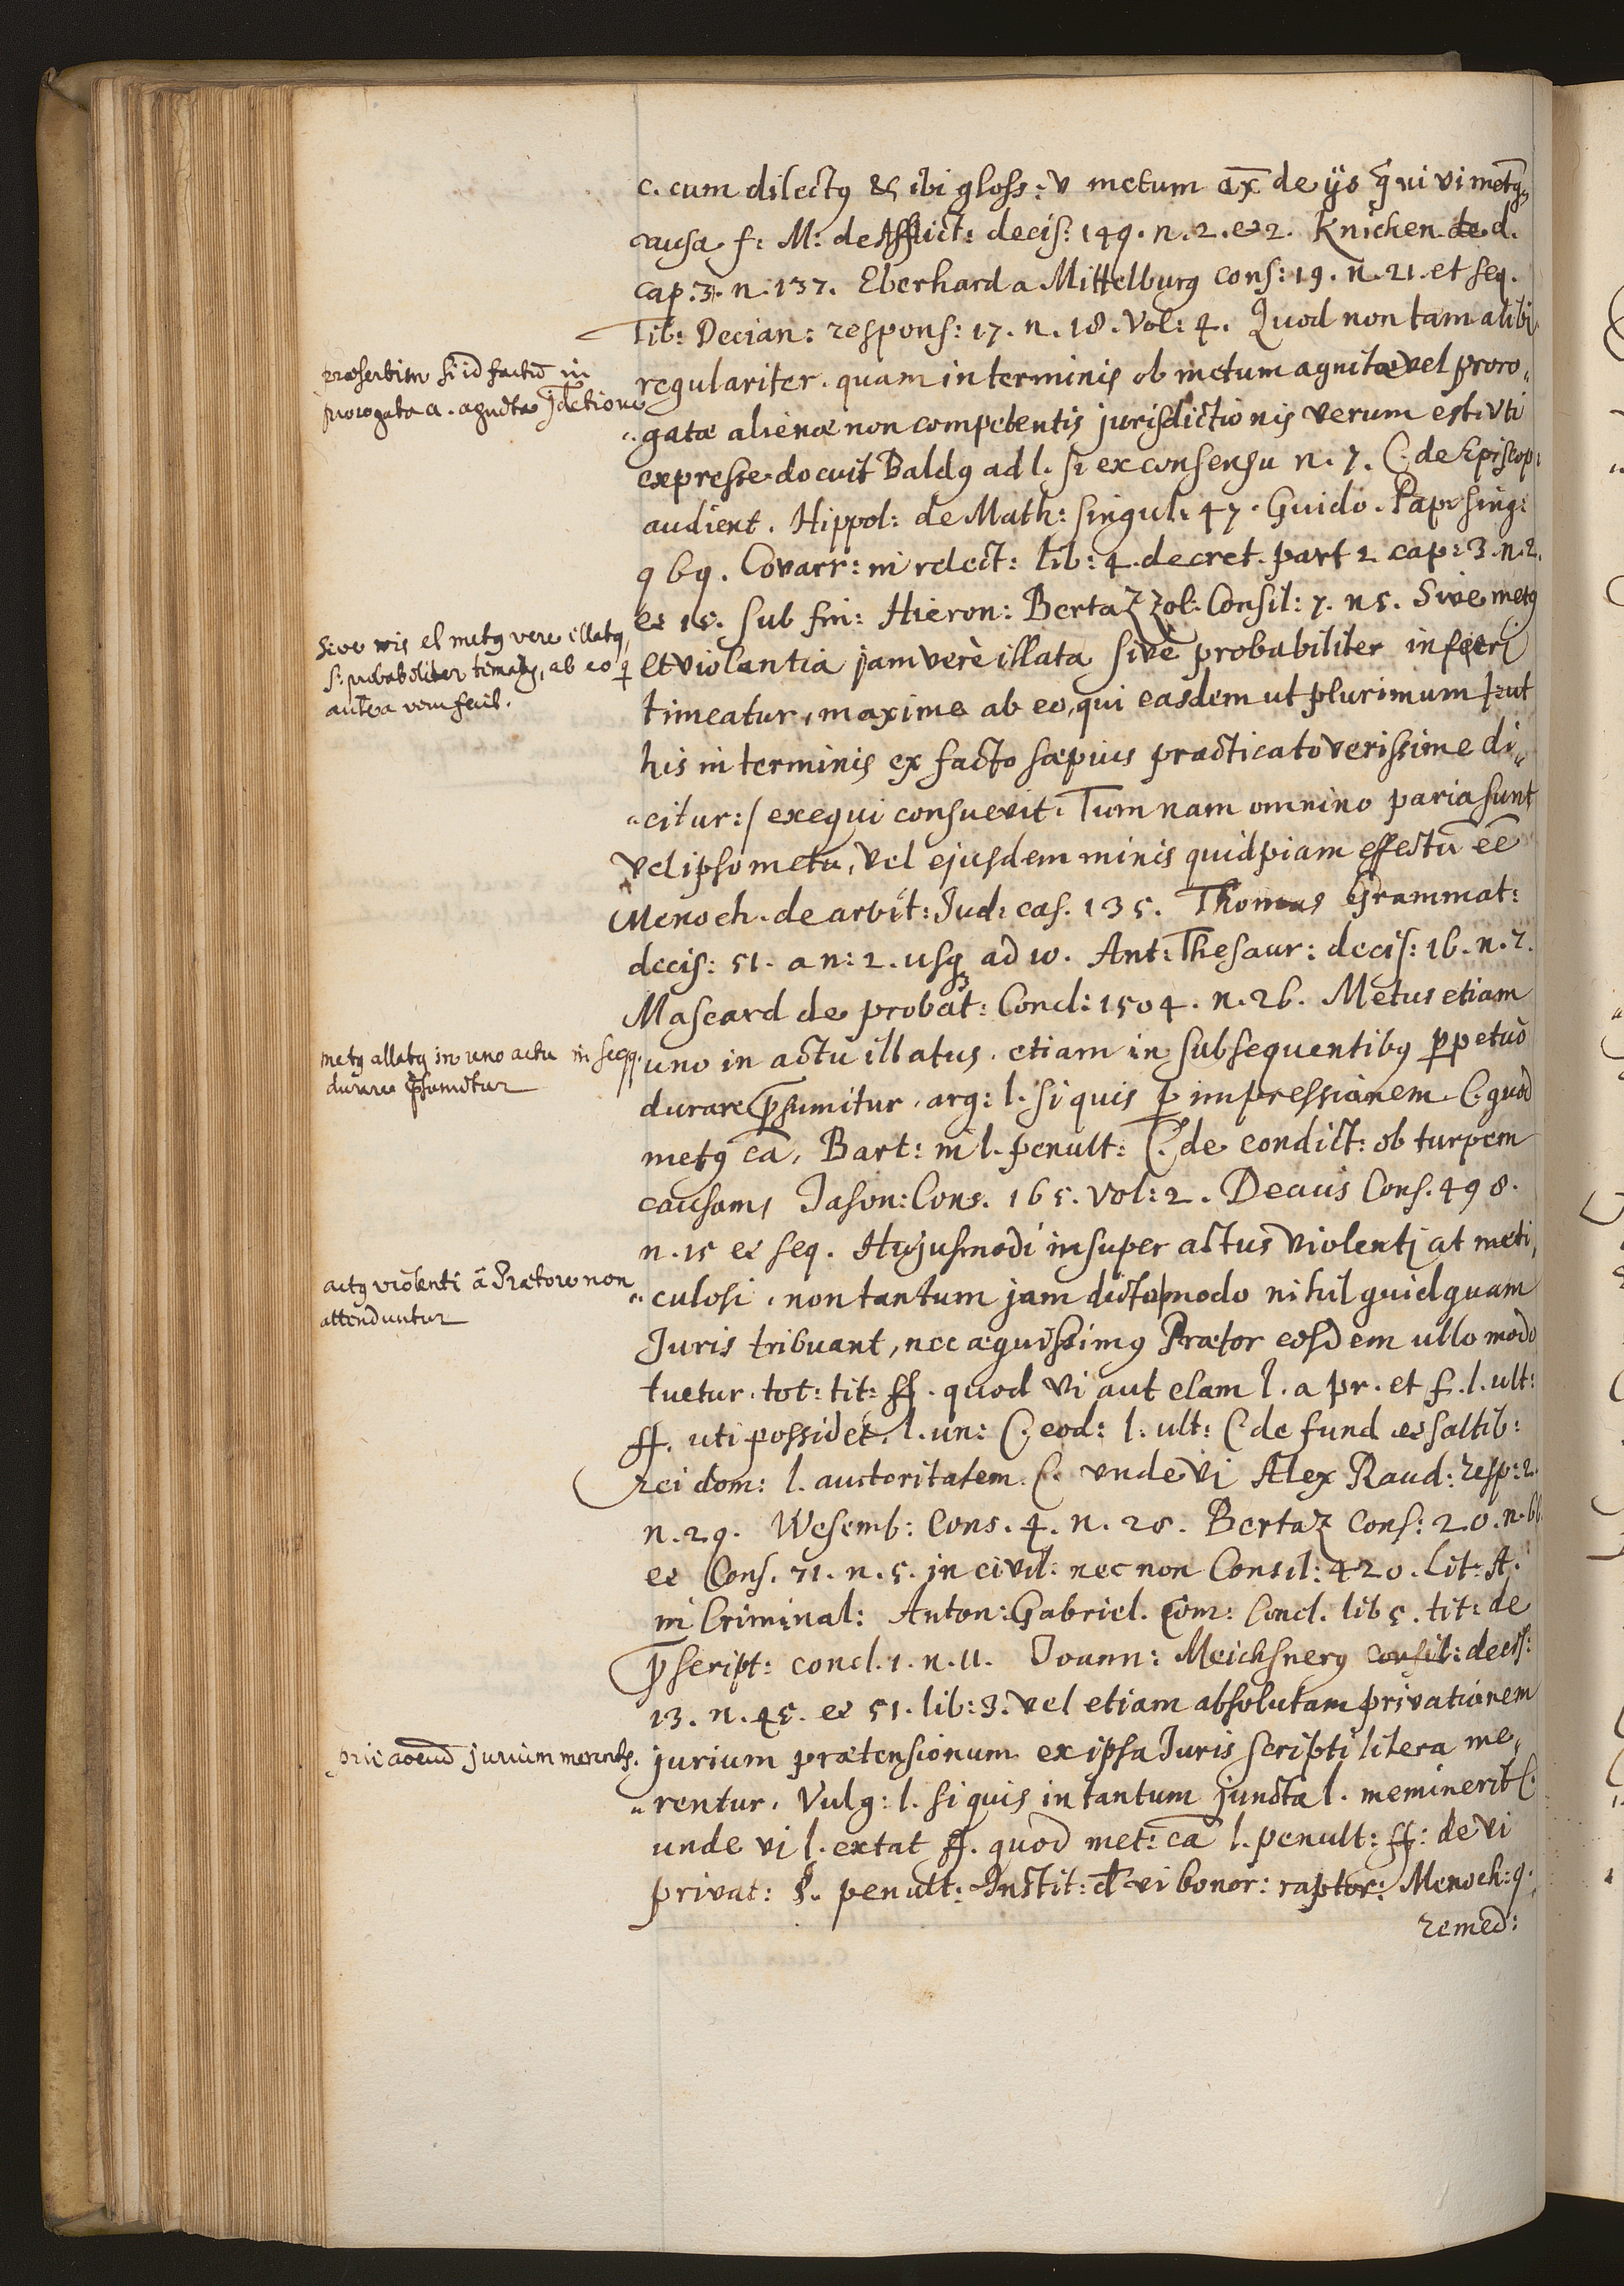 c. cum dilectꝯ & ibi gloss: v metum ax̄ de ijs qui vi metꝯq₃
causa f: M: de Afflict: decis: 149. n. 2. et 2. Knichen de d.
cap: 3. n. 137. Eberhard a Mittelburg cons: 19. n. 21. et seq.
Tib: Decian: respons: 17. n. 18. Vol: 4. Quod non tam alibi
præsertim si id factū in
prorogata a. agnita Jdictione
regulariter. quam in terminis ob metum agnitæ vel proro„
„gatæ alienæ non competentis jurisdictionis verum est, vti
expresse docuit Baldꝯ ad l. si ex consensu n. 7. C. de Episcop:
audient. Hippol: de Math: singul: 47. Guido. Pap: sing:
969. Covarr: in relect: lib: 4. decret. part 2 cap: 3. n. 2.
et 15. sub fin: Hieron: Bertazzol. Consil: 7. n 5. Sive metꝯ
sive vis el metꝯ vere illatꝯ,
s: probabiliter timatꝯ, ab eo q̄
antea vim fecit.
et violantia jam verè illata sivè probabiliter inferri
timeatur, maxime ab eo, qui easdem ut plurimum |: ut
his in terminis ex facto sæpius practicato verissime di„
„citur :| exequi consuevit. Tum nam omnino paria sunt
vel ipso metu, vel ejusdem minis quidpiam effectū eē
Menoch. de arbit: Jud: cas. 135. Thomas Grammat:
decis: 51. a n: 2. usq₃ ad 10. Ant: Thesaur: decis: 16. n. 7.
Mascard de probat: Concl: 1504. n. 26. Metus etiam
metꝯ allatꝯ in uno actu in seqq.
durare p̄sumitur
uno in actu illatus. etiam in subsequentibꝯ ꝑpetuò
durare p̄sumitur. arg: l. si quis ꝑ impressionem C. quod
metꝯ cā, Bart: in l. penult: C. de condict: ob turpem
causam, Jason: Cons. 165. vol: 2. Decius Cons. 498.
n. 15 et seq. Hujusmodi insuper actus violenti at meti„
actꝯ violenti â Prætore non
attenduntur
„culosi. non tantum jam dicto modo nihil quidquam
Juris tribuant, nec æquissimꝯ Prætor eosdem ullo modo
tuetur. tot: tit: ff. quod vi aut clam l. a pr. et f. l. ult:
ff. uti possidet. l. un: C. eod: l. ult: C de fund et saltib:
rei dom: l. auctoritatem. C. unde vi Alex Raud: resp: 2.
n. 29. Wesemb: Cons. 4. n. 28. Bertaz Cons: 20. n. 61.
et Cons. 71. n. 5. in civil: nec non Consil: 420. Lit: A.
in Criminal: Anton: Gabriel. Com: Concl. lib 5. tit: de
p̄script: concl. 1. n. 11. Joann: Meichsnerꝯ consil: decis:
13. n. 45. et 51. lib: 3. vel etiam absolutam privationem
jurium merentꝯ.
jurium prætensionum ex ipsa Juris scripti litera me„
„rentur. Vulg: l. si quis in tantum juncta l. meminerit C.
unde vi l. extat ff. quod met: cā l. penult: ff: de vi
privat: §. penult: Instit: d vi bonor: raptor: Menoch: 9.
remed: